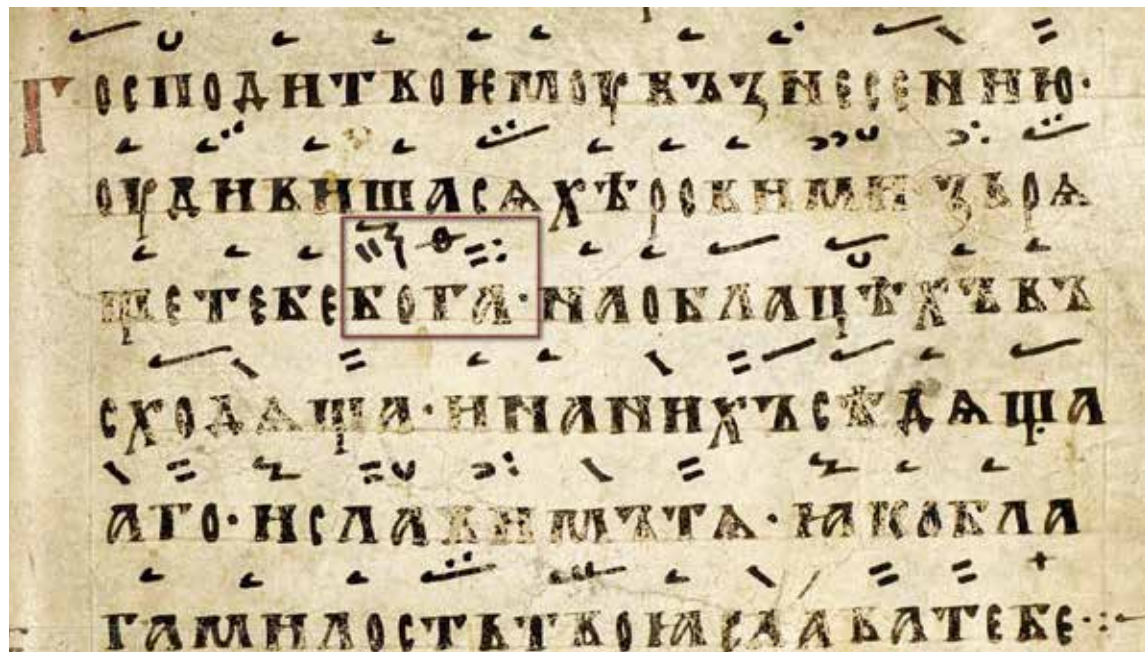 Господи твоѥмоу въꙁнесению·
оудивишасѧ хѣровими ꙁьрѧ
ще тебе бога· на облацѣхъ въ
сходѧща· и на нихъ сѣдѧща
аго· и славимъ тѧ· ꙗко бла
га милость твоꙗ слава тебе·: